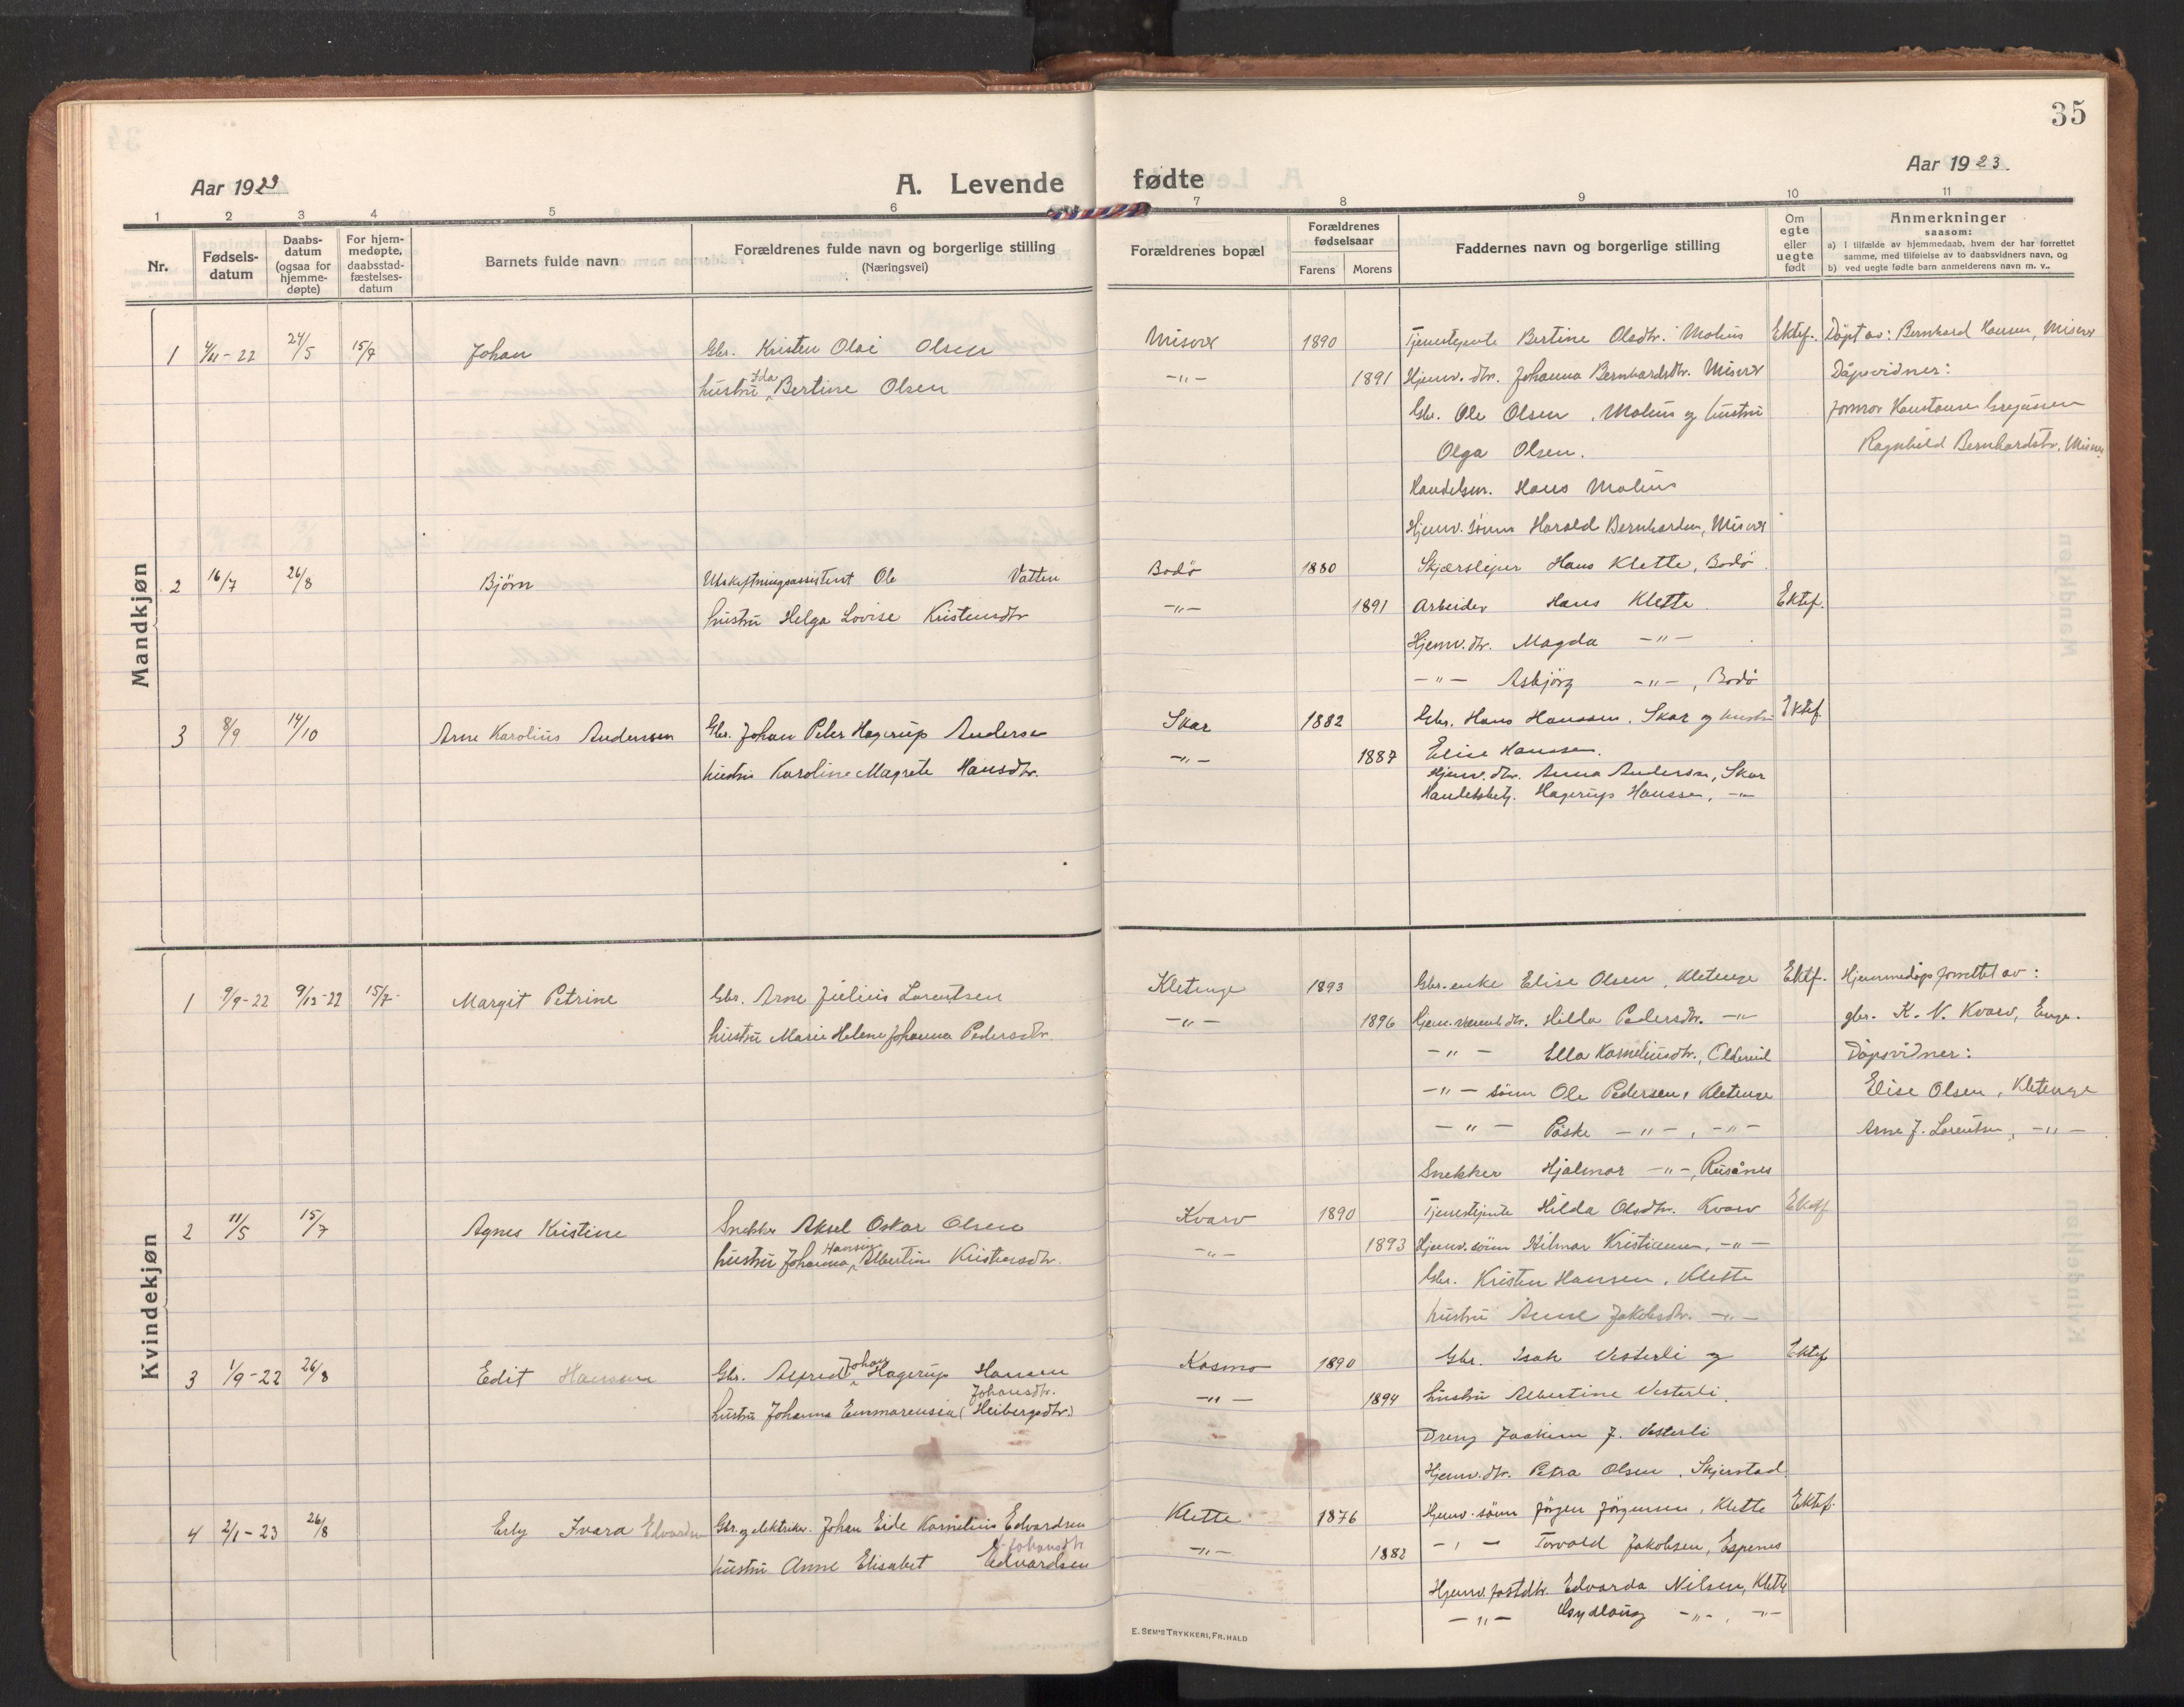 35
Aar 1923
A. Levende fødte
Aar 1923.
1 2 3 4 5 6 7 8 9 10 11
Nr.
Fødsels-
datum
Daabs-
datum
(ogsaa for
hjemme-
døpte)
For hjem-
medøpte,
daabsstad-
fæstelses-
datum
Barnets fulde navn
Forældrenes fulde navn og borgerlige stilling
(Næringsvei)
Forældrenes bopæl
Forældrenes
fødselsaar
Farens Morens
Faddernes navn og borgerlige stilling
Om
egte
eller
uegte
født
Anmerkninger
saasom:
a) i tilfælde av hjemmedaab, hvem der har forrettet
samme, med tilføielse av to daabsvidners navn, og
b) ved uegte fødte barn anmelderens navn m. v..
Mandkjøn
1 4/11-22 24/5 15/7 Johan Gbr. Kristen Olai Olsen Misvær 1890 Tjenestejente Bertine Olsdtr. Moljus Ektef. Døpt av: Bernhard Hansen, Misvær
hustru Ida Bertine Olsen -"- 1891 Hjemv. dtr. Johanna Bernhardsdtr. Misvær Dåpsvidner:
Gbr. Ole Olsen, Moljus og hustru Jormor
Olga Olsen. Ragnhild Bernhardsdtr., Misvær
Handelsm. Hans Moljus
Hjemv. sønn Harald Bernhardsen, Misvær
2 16/7 26/8 Bjørn Utskytningsassistent Ole Vatten Bodø 1880 Hans Klette, Bodø.
hustru Helga Lovise Kristensdtr -"- 1891 Arbeider Hans Klette. Ektef.
Hjemv. dtr. Magda -"-
-"- Asbjørg -"-, Bodø
3 8/9 14/10 Arne Karolius Andersen Gbr. Johan Peter Hagerup Andersen Skar 1882 Gbr. Hans Hanssen. Skar og hustru Ektef
hustru Karoline Magrete Hansdtr. -"- 1887 Elise Hanssen.
Hjemv. dtr. Anna Andersen, Skar
Handelsbetj. Hagerup Hanssen, -"-
Kvindekjøn
1 9/9-22 9/12-22 15/7- Margit Petrine Gbr. Arne Julius Lorentsen Kletenge 1893 Gbr. enke Elise Olsen, Kletenge Ektef. Hjemmedåp forrettet av:
hustru Marie Helene Johanna Pedersdtr. -"- 1896 Hjem. værend. dtr. Hilda Pedersdtr. -"- gbr. K. N. Kvarv, Enge.
-"- Ella Korneliusdtr., Oldereid Dåpsvidner:
-"- sønn Ole Pedersen, Kletenge Elise Olsen, Kletenge
-"- Påske -"-, -"- Arne J. Lorentsen, -"-
Snekker Hjalmar -"-, Rusånes
2 11/5 15/7 Agnes Kristine Snekker Aksel Oskar Olsen Kvarv 1890 Tjenestejente Hilda Olsdtr. Kvarv Ektef
hustru Johanna Hansine Albertine Kristensdtr. -"- 1893 Hjemv. sønn Hilmar Kristiansen, -"-
Gbr. Kristen Hansen, Klette
hustru Anne Jakobsdtr. -"-
3 1/9-22 26/8 Edit Hanssen Gbr. Alfred Johan Hagerup Hansen Kosmo 1890 Gbr. Isak Vesterli og Ektef
hustru Johanna Emmarensia (Heibergsdtr.) Johansdtr. -"- 1894 hustru Albertine Vesterli.
Dreng Joakim J. Vesterli
Hjemv. dtr. Petra Olsen, Skjerstad.
4 2/1-23 26/8 Erly Ivara Edvardsen Gbr. og elektriker. Johan Eide Kornelius Edvardsen Klette 1876 Hjemv. sønn Jørgen Jørgensen, Klette Ektef.
hustru Anne Elisabet Edvardsen Johansdtr -"- 1882 -"- Torvald Jakobsen, Espenes
Hjemv. fostdtr. Edvarda Nilsen, Klette
-"- -"-, -"-
E. SEM'S TRYKKERI, FR. HALD